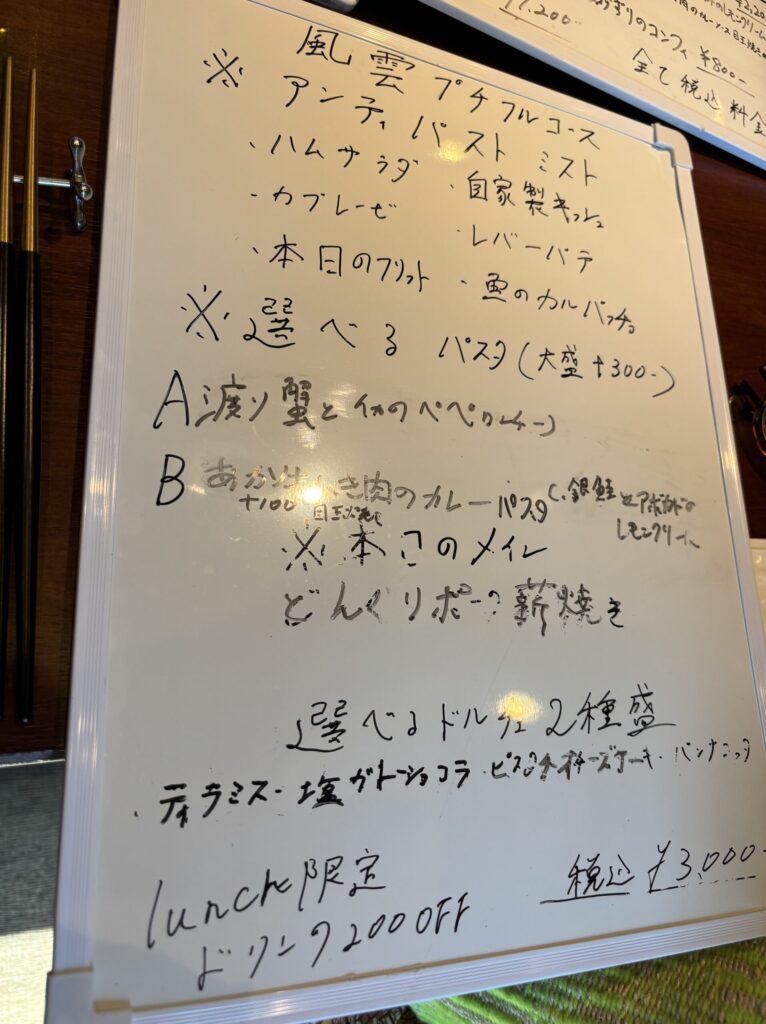 ¥2,20
¥7,200-
のコンフィ ¥800-
全て税込料金
風雲プチフルコース
※アンティパスト ミスト
・ハムサラダ ・自家製キッシュ
・カプレーゼ ・レバーパテ
・本日のフリット ・魚のカルパッチョ
※選べる パスタ(大盛+300-)
A 渡り蟹とイカのペペロンチーノ
B あか牛ひき肉のカレーパスタ C.銀鮭とアボカドの
+100 目玉焼き レモンクリーム
※本日のメイン
どんぐりポークの薪焼き
選べるドルチェ2種盛
・ティラミス・塩ガトーショコラ・ピスタチオチーズケーキ・パンナコッタ
lunch限定 税込 ¥3,000-
ドリンク200OFF